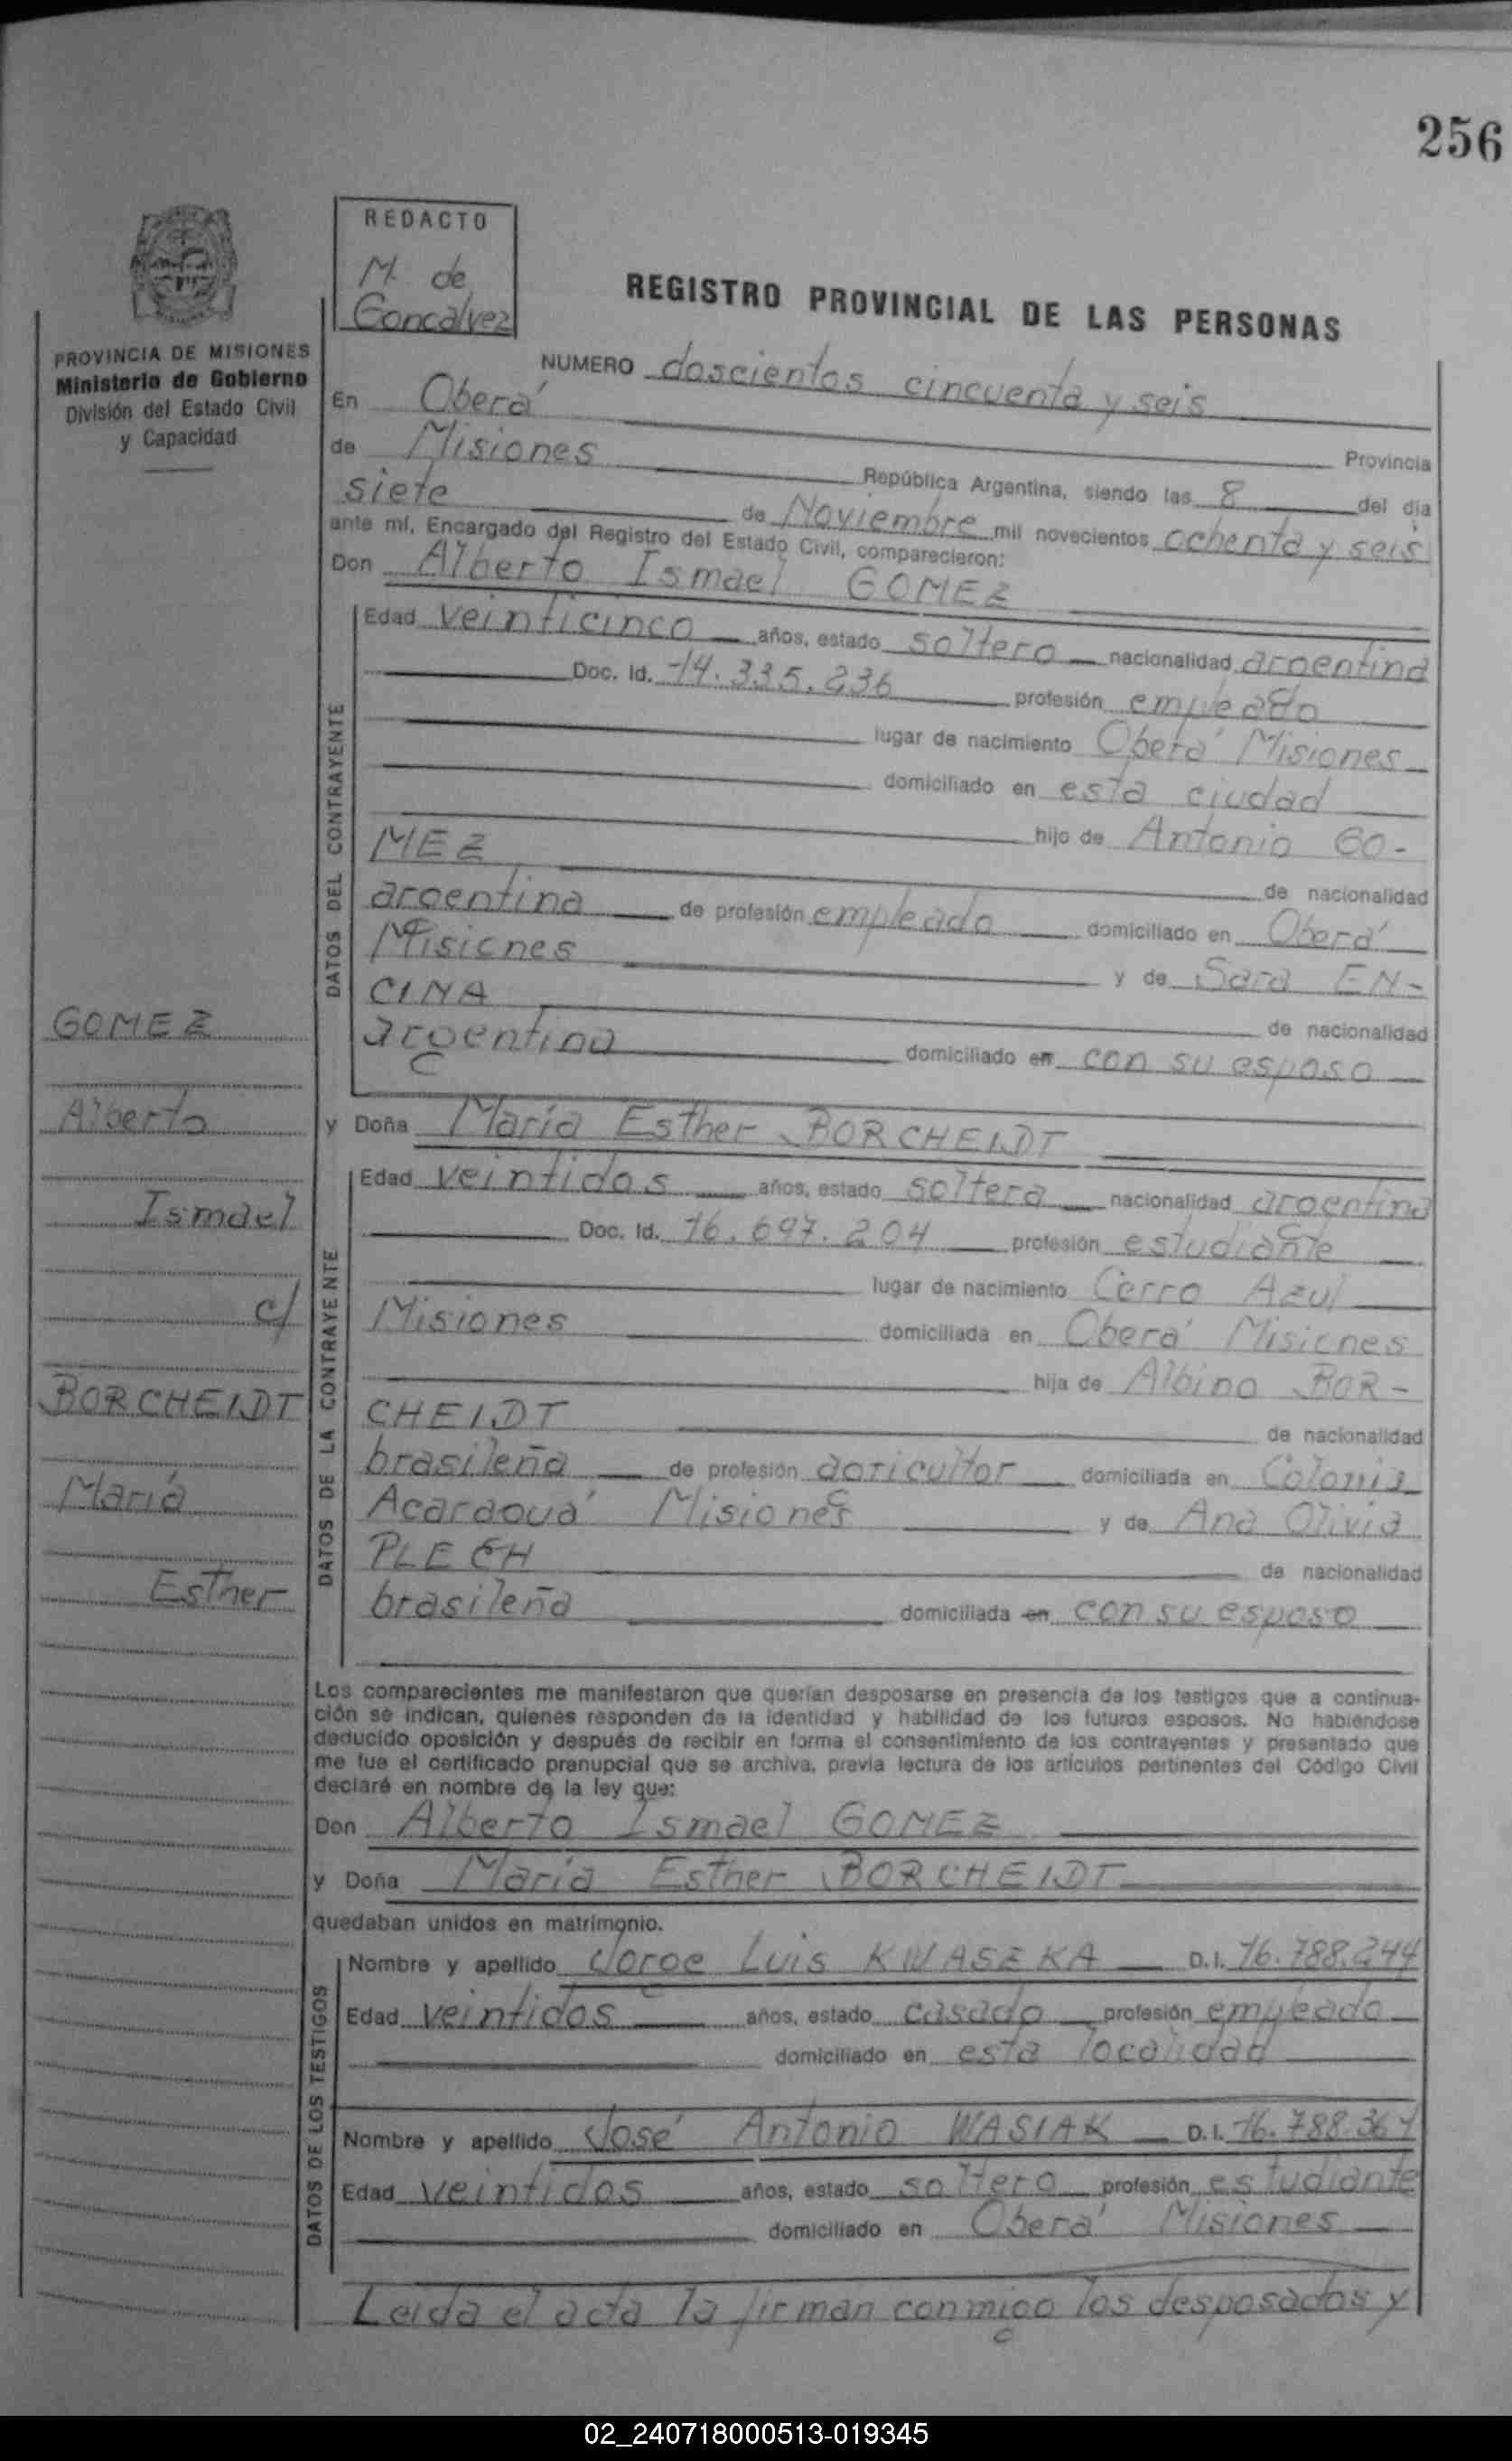 256
REDACTO
M. de
Goncalvez
REGISTRO PROVINCIAL DE LAS PERSONAS
PROVINCIA DE MISIONES
Ministerio de Gobierno
División del Estado Civil
y Capacidad
NUMERO doscientos cincuenta y seis
En Oberá Provincia
de Misiones República Argentina, siendo las 8 del día
siete de Noviembre mil novecientos ochenta y seis
ante mí, Encargado del Registro del Estado Civil, comparecieron:
Don Alberto Ismael GOMEZ
DATOS DEL CONTRAYENTE
Edad veinticinco años, estado soltero nacionalidad argentina
Doc. Id. 14.335.236 profesión empleado
lugar de nacimiento Oberá Misiones
domiciliado en esta ciudad
hijo de Antonio GO-
MEZ de nacionalidad
argentina de profesión empleado domiciliado en Oberá
Misiones y de Sara EN-
CINA de nacionalidad
argentina domiciliado en con su esposo
y Doña María Esther BORCHEIDT
DATOS DE LA CONTRAYENTE
Edad veintidos años, estado soltera nacionalidad argentina
Doc. Id. 16.697.204 profesión estudiante
lugar de nacimiento Cerro Azul
Misiones domiciliada en Oberá Misiones
hija de Albino BOR-
CHEIDT de nacionalidad
brasileña de profesión agricultor domiciliada en Colonia
Acaragua´ Misiones y de Ana Olivia
PLECH de nacionalidad
brasileña domiciliada en con su esposo
GOMEZ
Alberto
Ismael
c/
BORCHEIDT
María
Esther
Los comparecientes me manifestaron que querían desposarse en presencia de los testigos que a continua-
ción se indican, quienes responden de la identidad y habilidad de los futuros esposos. No habiéndose
deducido oposición y después de recibir en forma el consentimiento de los contrayentes y presentado que
me fue el certificado prenupcial que se archiva, previa lectura de los artículos pertinentes del Código Civil
declaré en nombre de la ley que:
Don Alberto Ismael GOMEZ
y Doña María Esther BORCHEIDT
quedaban unidos en matrimonio.
DATOS DE LOS TESTIGOS
Nombre y apellido Jorge Luis KWASZKA D.I. 16.788.244
Edad veintidos años, estado casado profesión empleado
domiciliado en esta localidad
Nombre y apellido José Antonio WASIAK D.I. 16.788.361
Edad veintidos años, estado soltero profesión estudiante
domiciliado en Oberá Misiones
Leida el acta la firman conmigo los desposados y
02_240718000513-019345